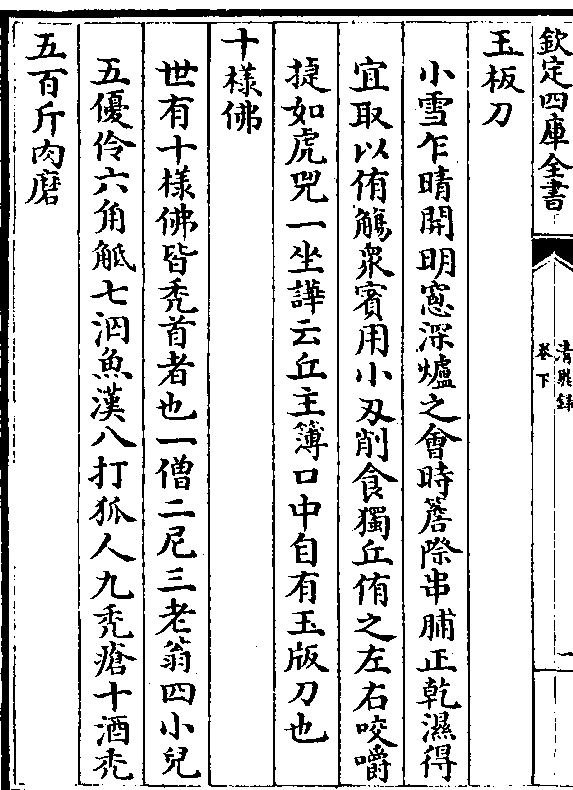 欽定四庫全書
清異録
卷下
玉板刀
小雪乍晴開明窓深爐之會時簷際串脯正乾濕得
宜取以侑觴衆賓用小刃削食獨丘侑之左右咬嚼
㨗如虎兕一坐譁云丘主簿口中自有玉版刀也
十様佛
世有十様佛皆秃首者也一僧二尼三老翁四小兒
五優伶六角觝七泅魚漢八打狐人九秃瘡十酒秃
五百斤肉磨